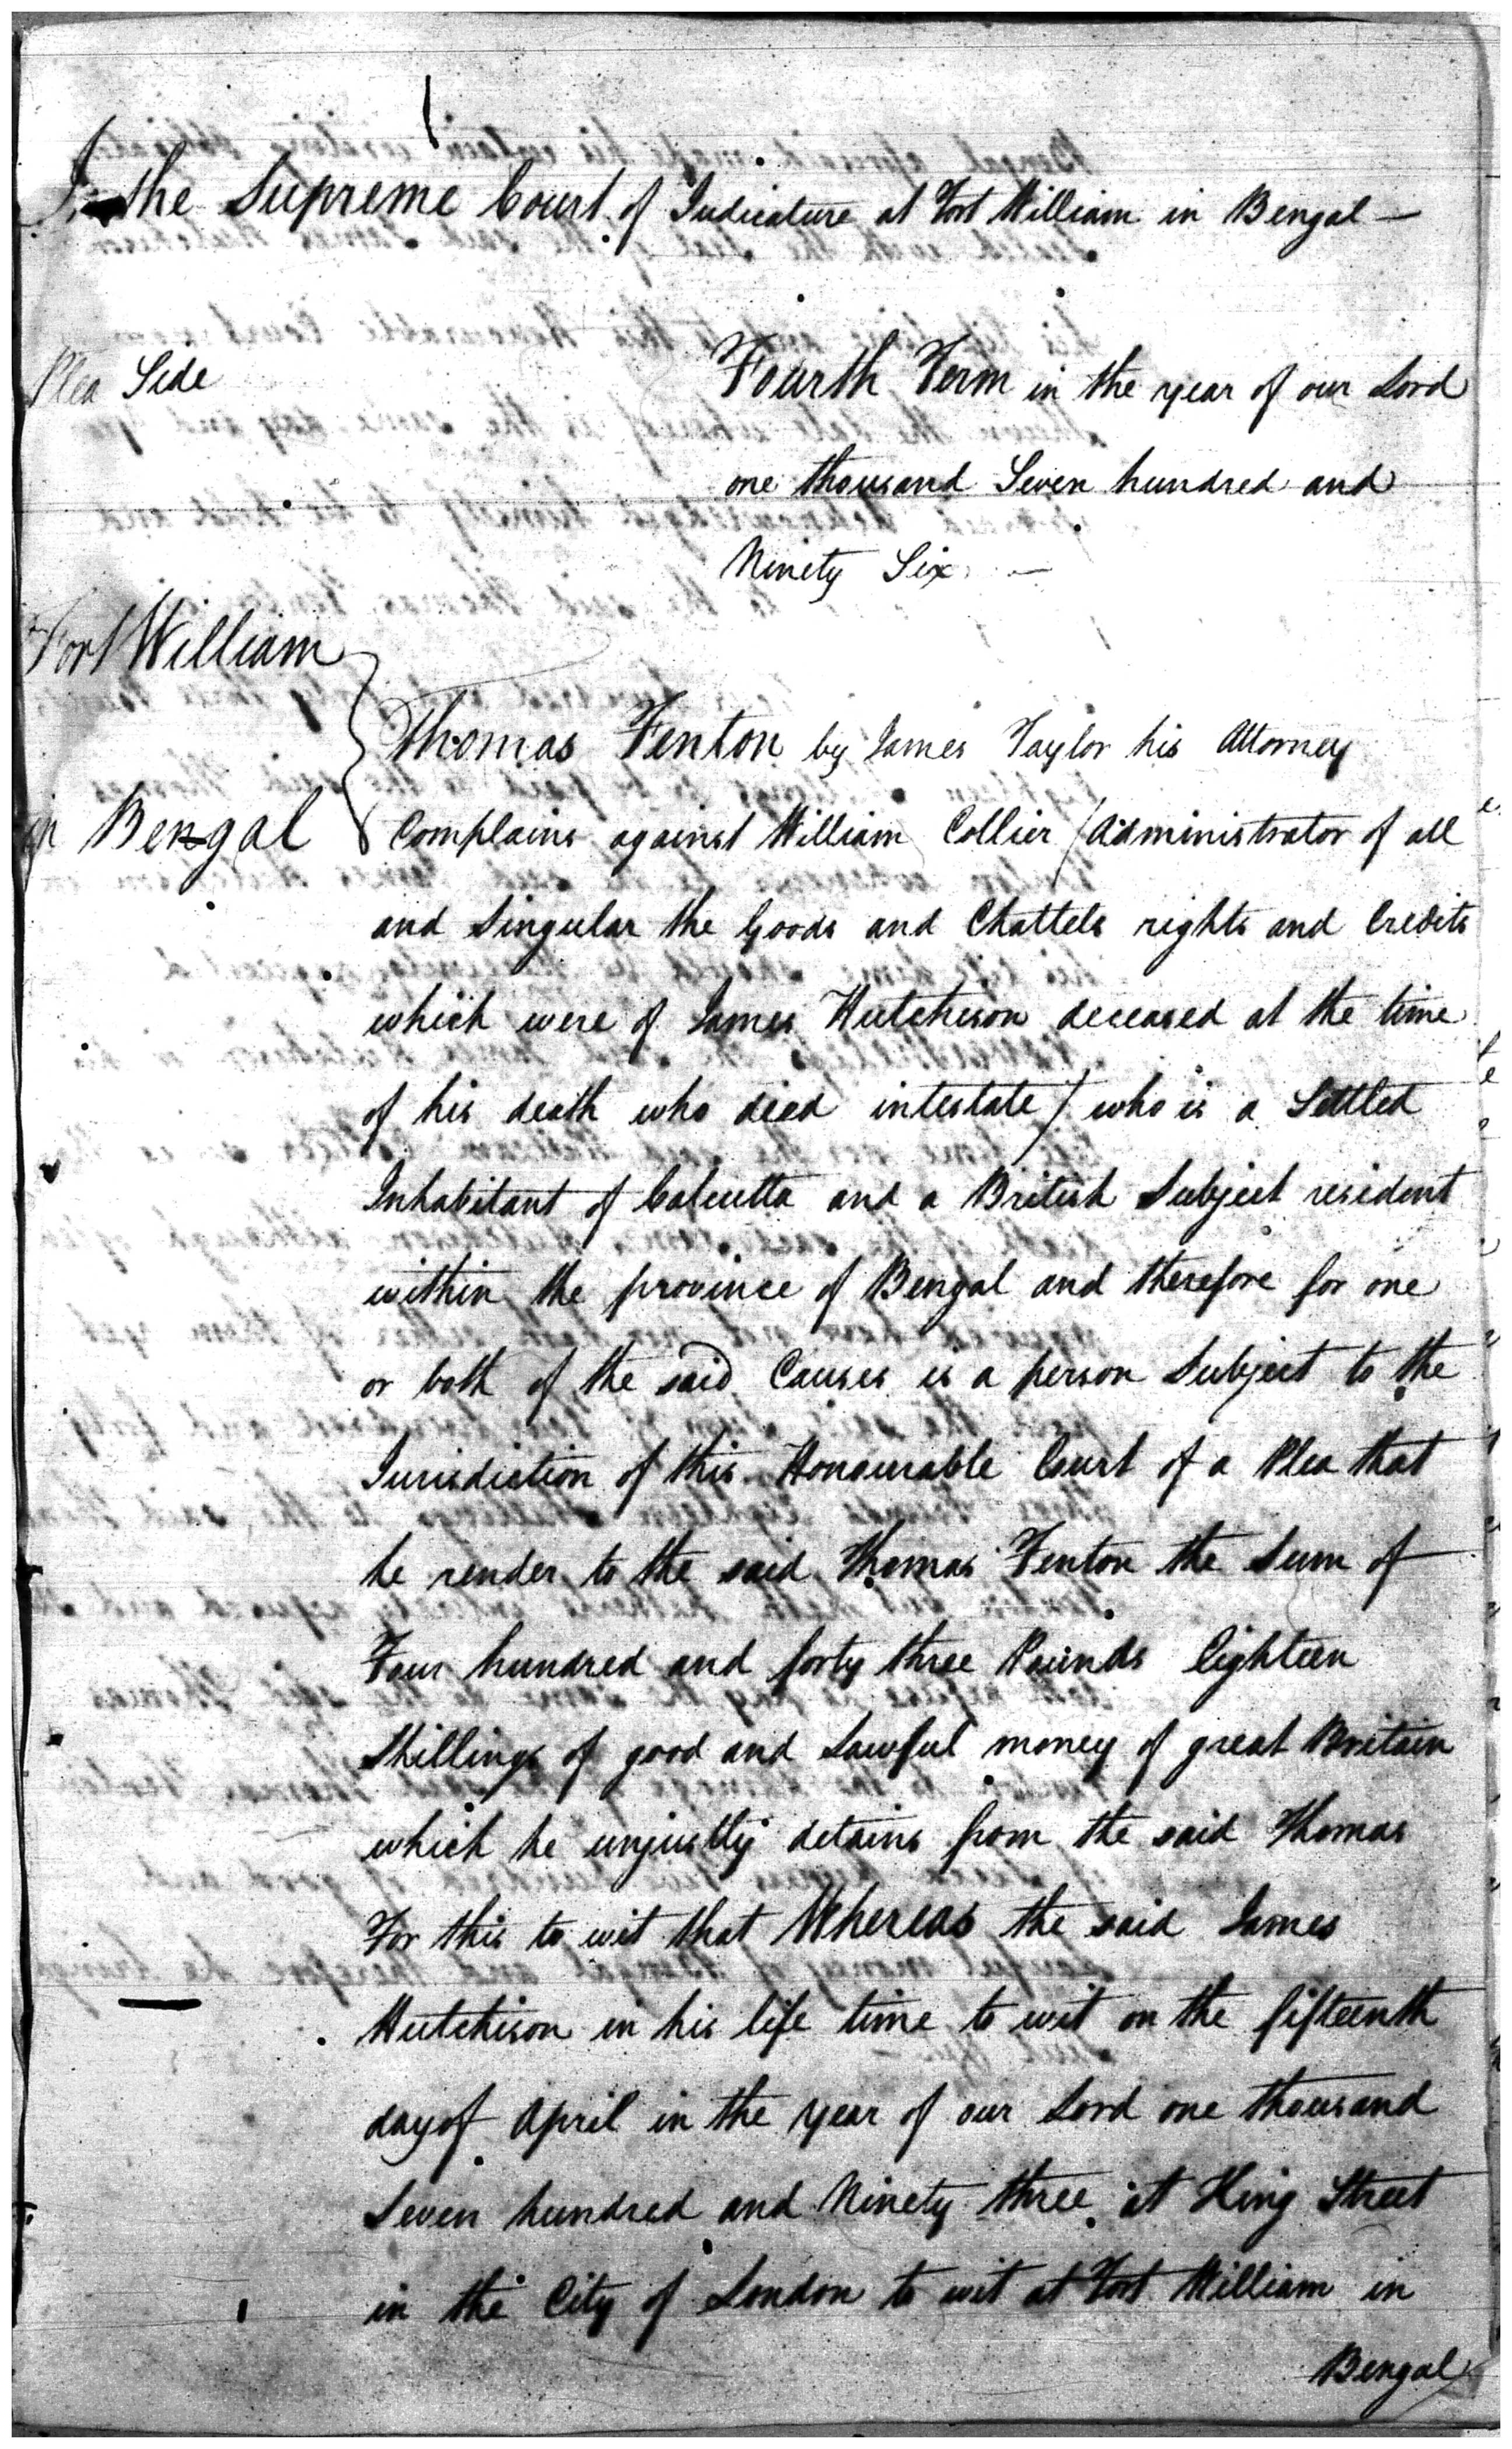 In the Supreme Court of Judicature at Fort William in Bengal —
Plea Side
Fourth Term in the year of our Lord
one thousand Seven hundred and
Ninety Six —
Fort William
in Bengal
Thomas Fenton by James Taylor his Attorney
Complains against William Collier (Administrator of all
and Singular the Goods and Chattels rights and Credits
which were of James Hutchison deceased at the time
of his death who died intestate) who is a Settled
Inhabitant of Calcutta and a British Subject resident
within the province of Bengal and therefore for one
or both of the said Causes is a person Subject to the
Jurisdiction of this Honourable Court of a Plea that
he render to the said Thomas Fenton the Sum of
Four hundred and forty three Pounds Eighteen
Shillings of good and Lawful money of great Britain
which he unjustly detains from the said Thomas
For this to wit that Whereas the said James
Hutchison in his life time to wit on the fifteenth
day of April in the year of our Lord one thousand
Seven hundred and Ninety three at King Street
in the City of London to wit at Fort William in
Bengal